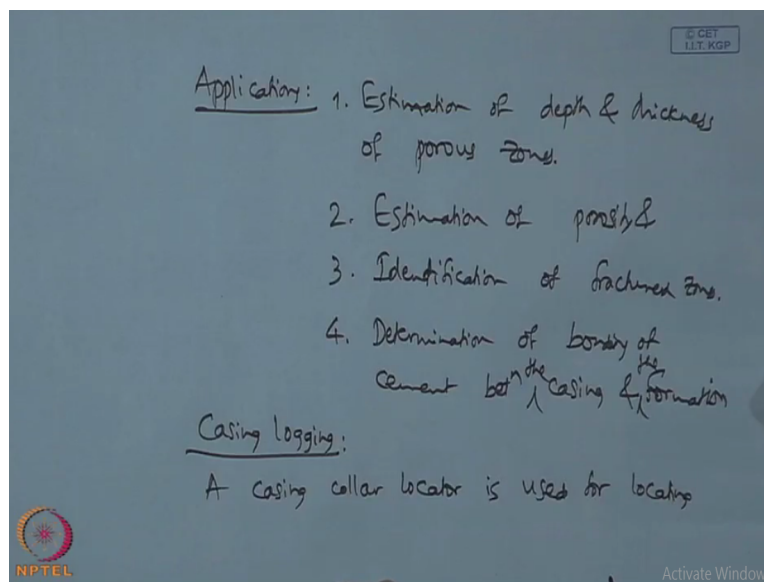 © CET
I.I.T. KGP
Application: 1. Estimation of depth & thickness
of porous zones.
2. Estimation of porosity &
3. Identification of fractured zone.
4. Determination of bonding of
cement betn the casing & the formation
Casing logging:
A casing collar locator is used for locating
NPTEL
Activate Window